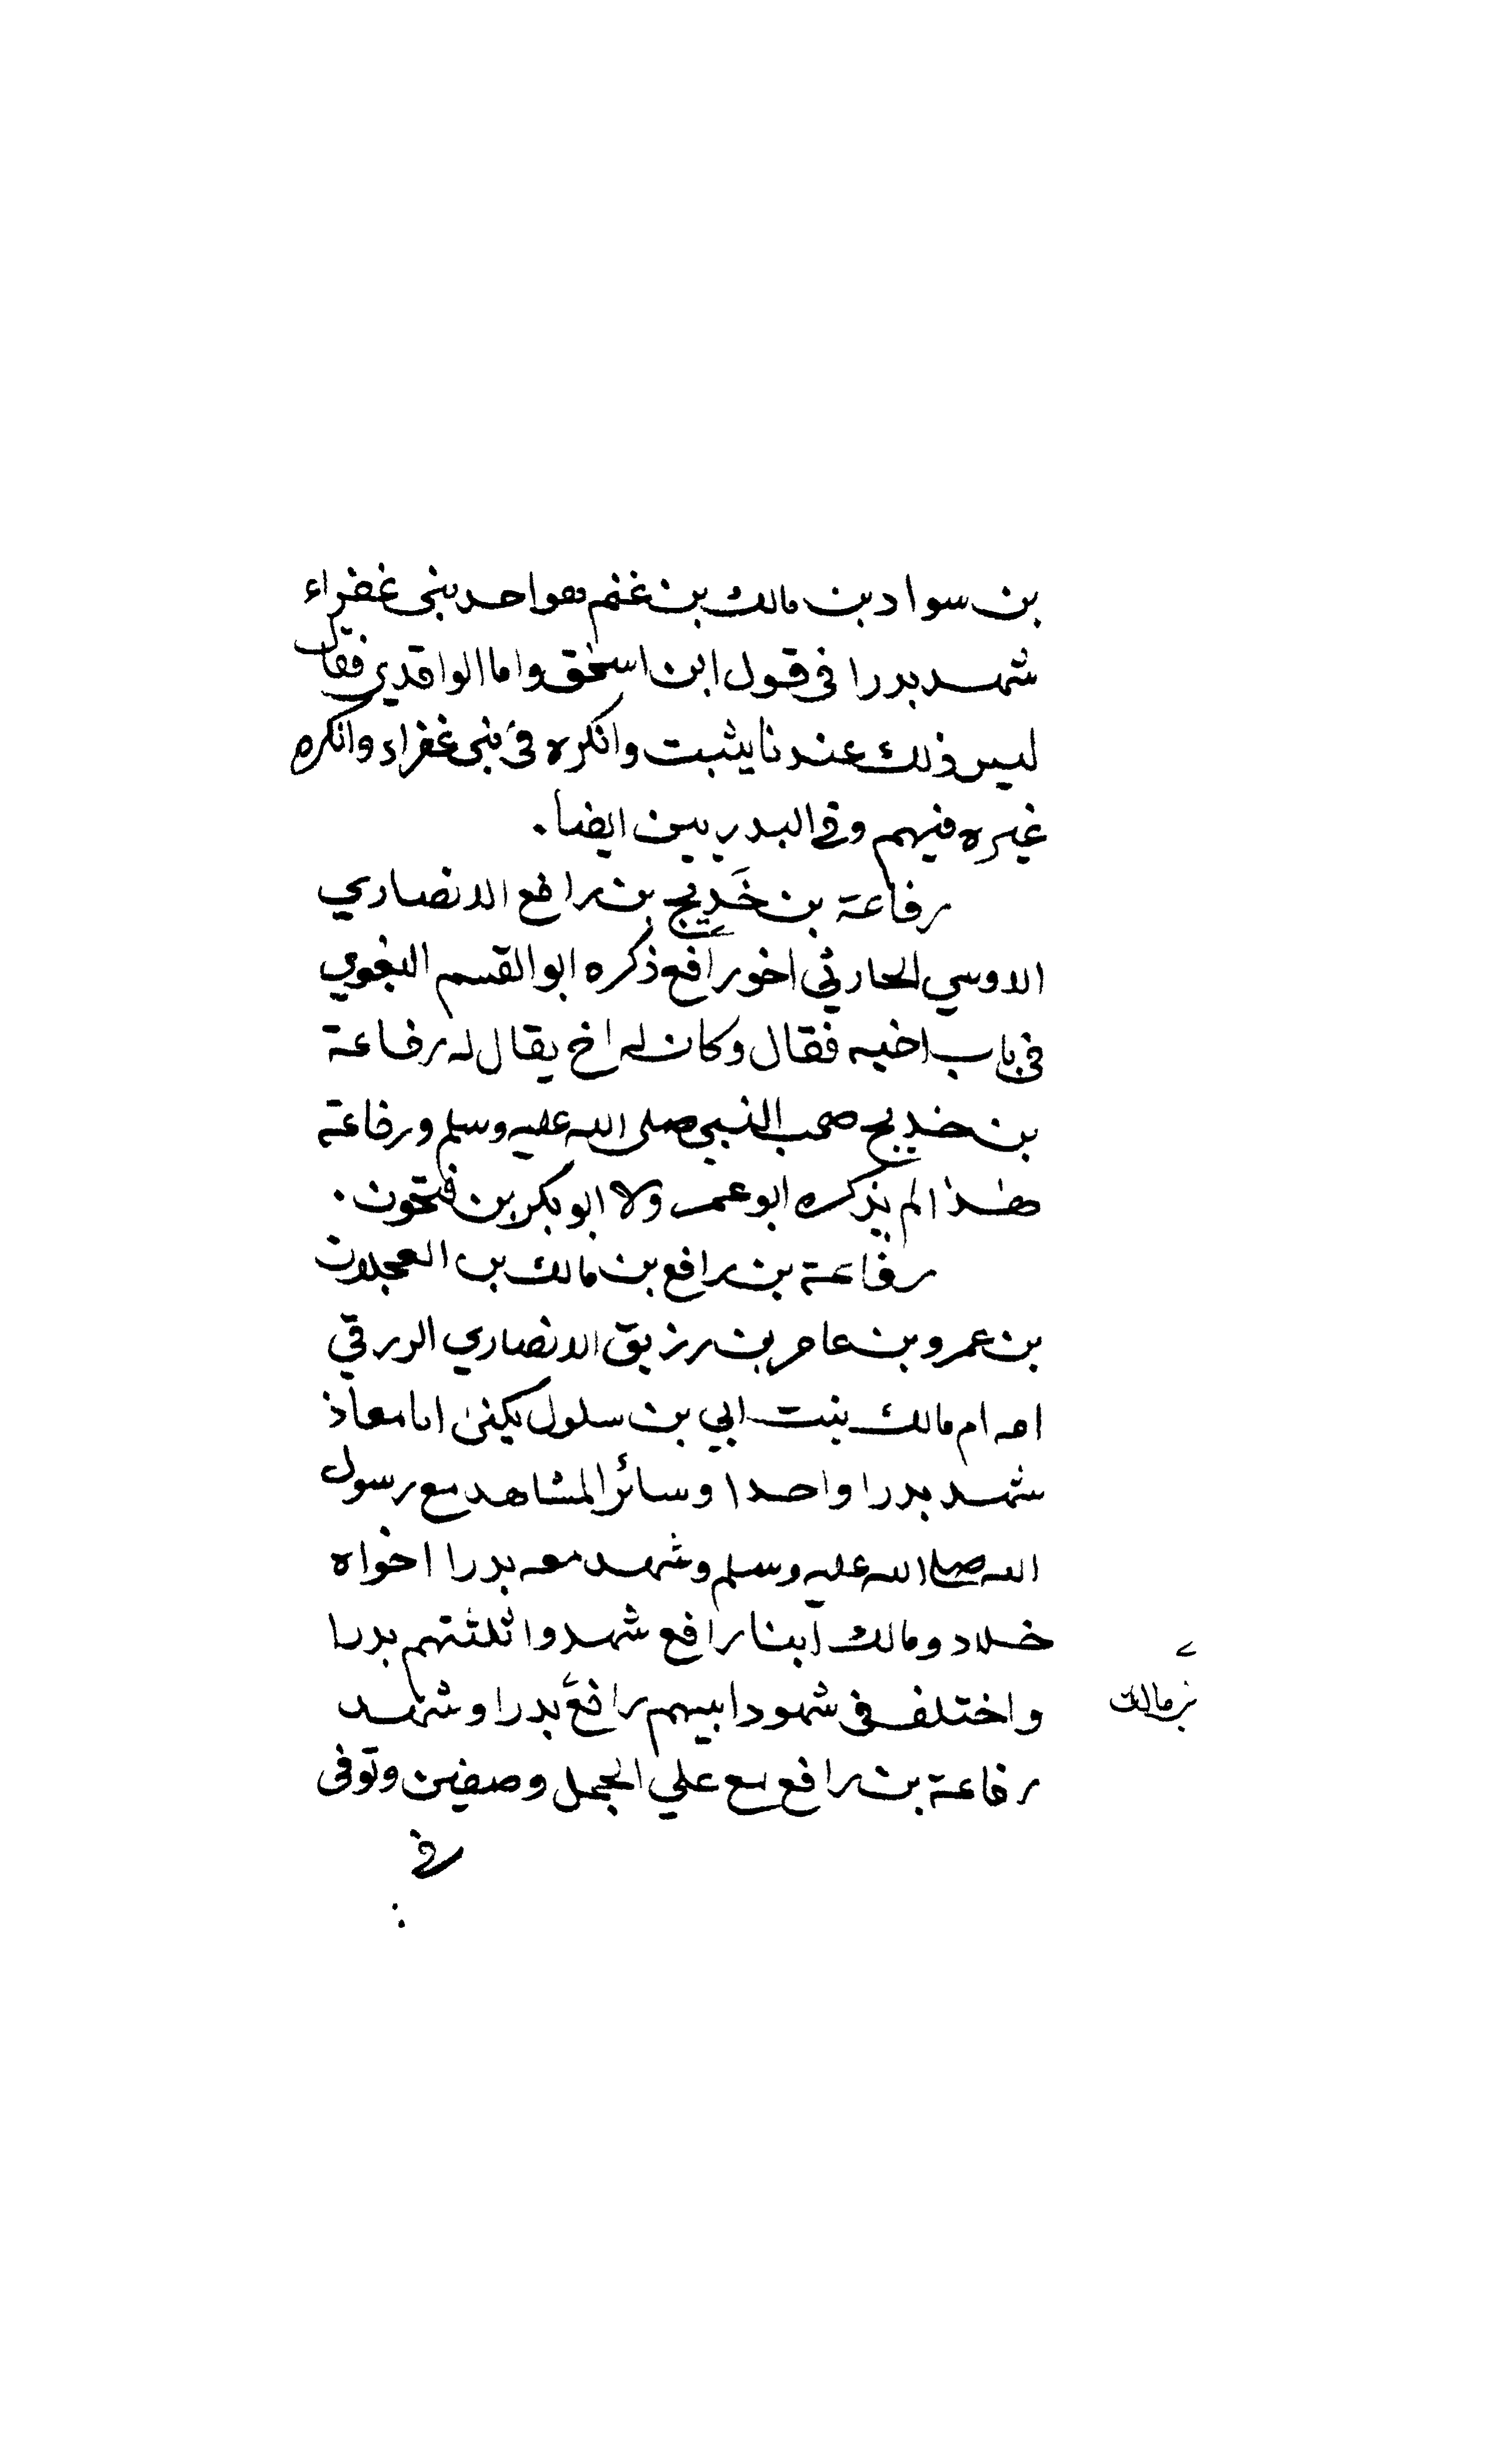 بن سواد بن مالك بن غنم هو احد بنى غفراء
شهد بدرا فى قول ابن اسحق واما الواقدي فقال
ليس ذلك عندنا يثبت وانكره فى بنى غفراء وانكره
غيره فيهم وفى البدريين ايضا.
رفاعة بن خَدِيج بن رافع الانصاري
الاوسي الحارثي اخو رافع ذكره ابو القسم البغوي
فى باب اخيه فقال وكان له اخ يقال له رفاعة
بن خديج صحب النبي صلى الله عليه وسلم ورفاعة
هذا لم يذكره ابو عمر ولا ابو بكر بن فتحون.
رفاعة بن رافع بن مالك بن العجلان
بن عمرو بن عامر بن زريق الانصاري الزرقي
امه ام مالك بنت ابي بن سلول يكنى ابا معاذ
شهد بدرا واحدا وسائر المشاهد مع رسول
الله صلى الله عليه وسلم وشهد معه بدرا اخواه
خلاد ومالك ابنا رافع شهدوا ثلثتهم بدرا
واختلف فى شهود ابيهم رافع بدرا وشهد
بن مالك
رفاعة بن رافع مع علي الجمل وصفين وتوفى
فى